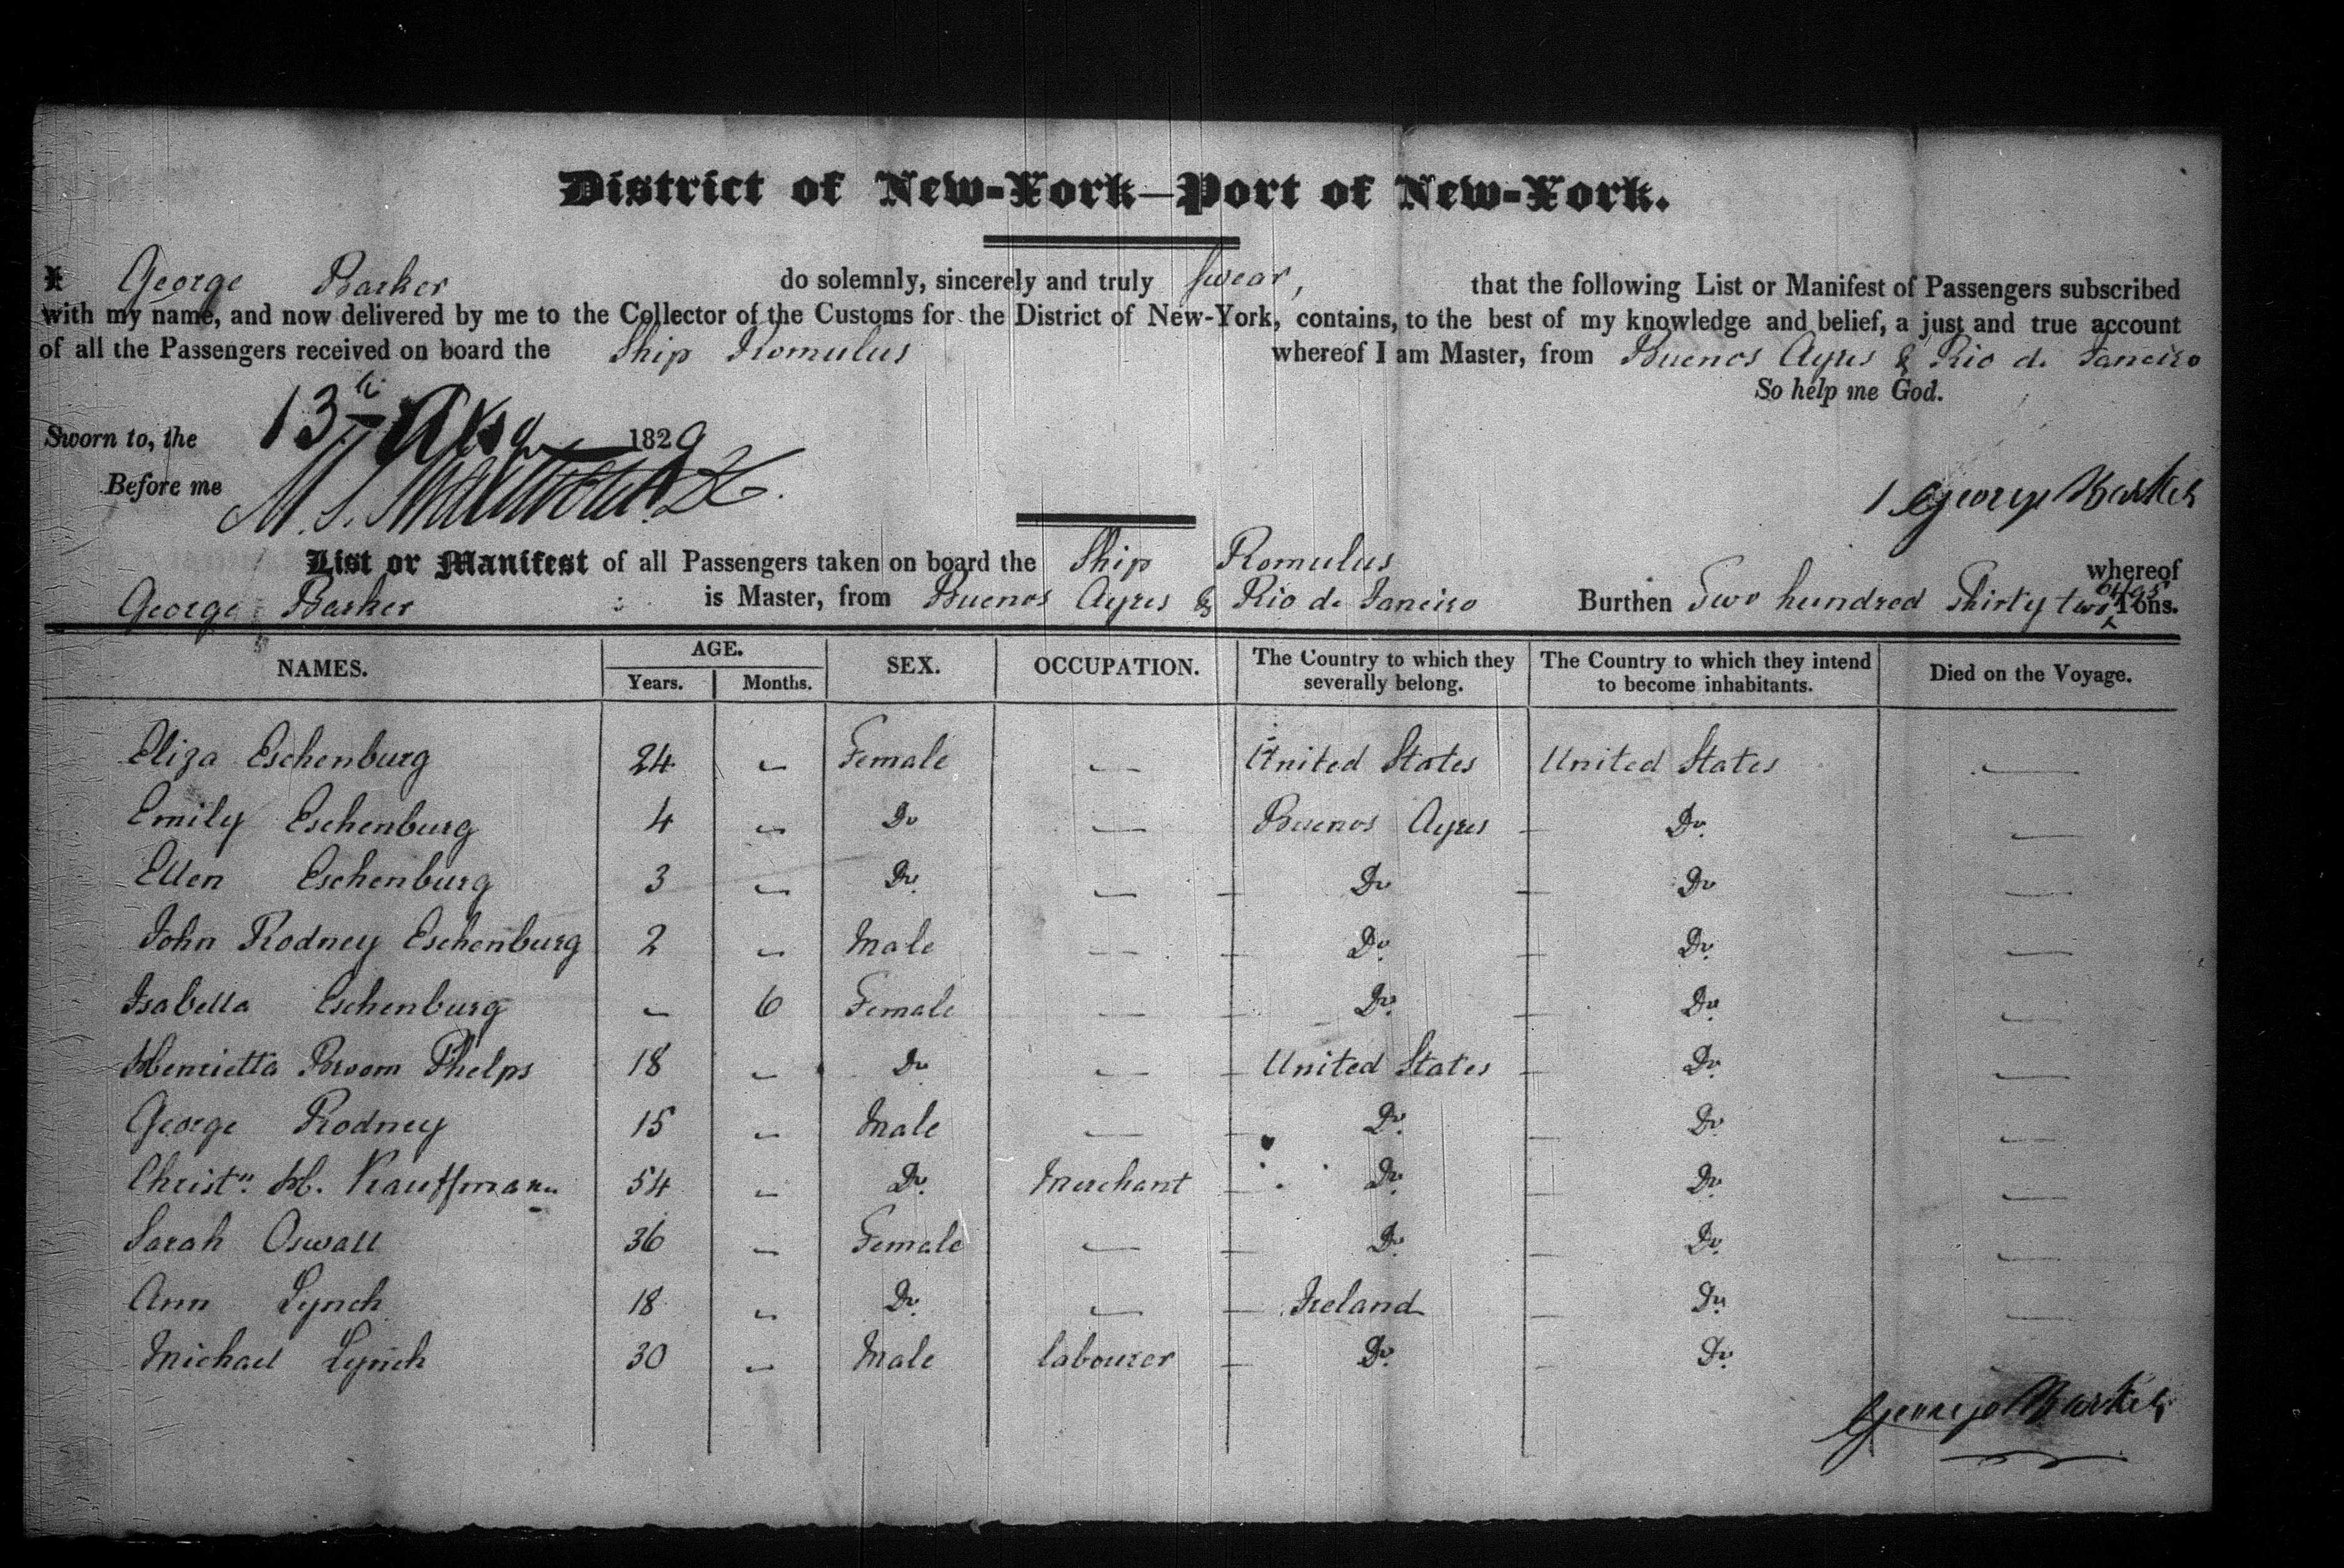 District of New-York—Port of New-York.
I George Barker do solemnly, sincerely and truly swear, that the following List or Manifest of Passengers subscribed
with my name, and now delivered by me to the Collector of the Customs for the District of New-York, contains, to the best of my knowledge and belief, a just and true account
of all the Passengers received on board the Ship Romulus whereof I am Master, from Buenos Ayres & Rio de Janeiro
So help me God.
Sworn to, the 13th 1829
Before me
George Barker
List or Manifest of all Passengers taken on board the Ship Romulus whereof
George Barker is Master, from Buenos Ayres & Rio de Janeiro Burthen Two hundred Thirty two Tons.
NAMES. AGE. Years. Months. SEX. OCCUPATION. The Country to which they severally belong. The Country to which they intend to become inhabitants. Died on the Voyage.
Eliza Eschenburg 24 — Female — United States United States —
Emily Eschenburg 4 — Do — Buenos Ayres — Do. —
Ellen Eschenburg 3 — Do. — Do — Do —
John Rodney Eschenburg 2 — Male — Do. — Do. —
Isabella Eschenburg — 6 Female — Do. — Do. —
Henrietta Broom Phelps 18 — Do — United States — Do. —
George Rodney 15 — Male — Do. — Do —
Christn. H. Kauffmann 54 — Do. Merchant — Do. Do. —
Sarah Oswall 36 — Female — Do. — Do. —
Ann Lynch 18 — Do. — Ireland — Do. —
Michael Lynch 30 — Male labourer — Do. — Do. —
George Barker